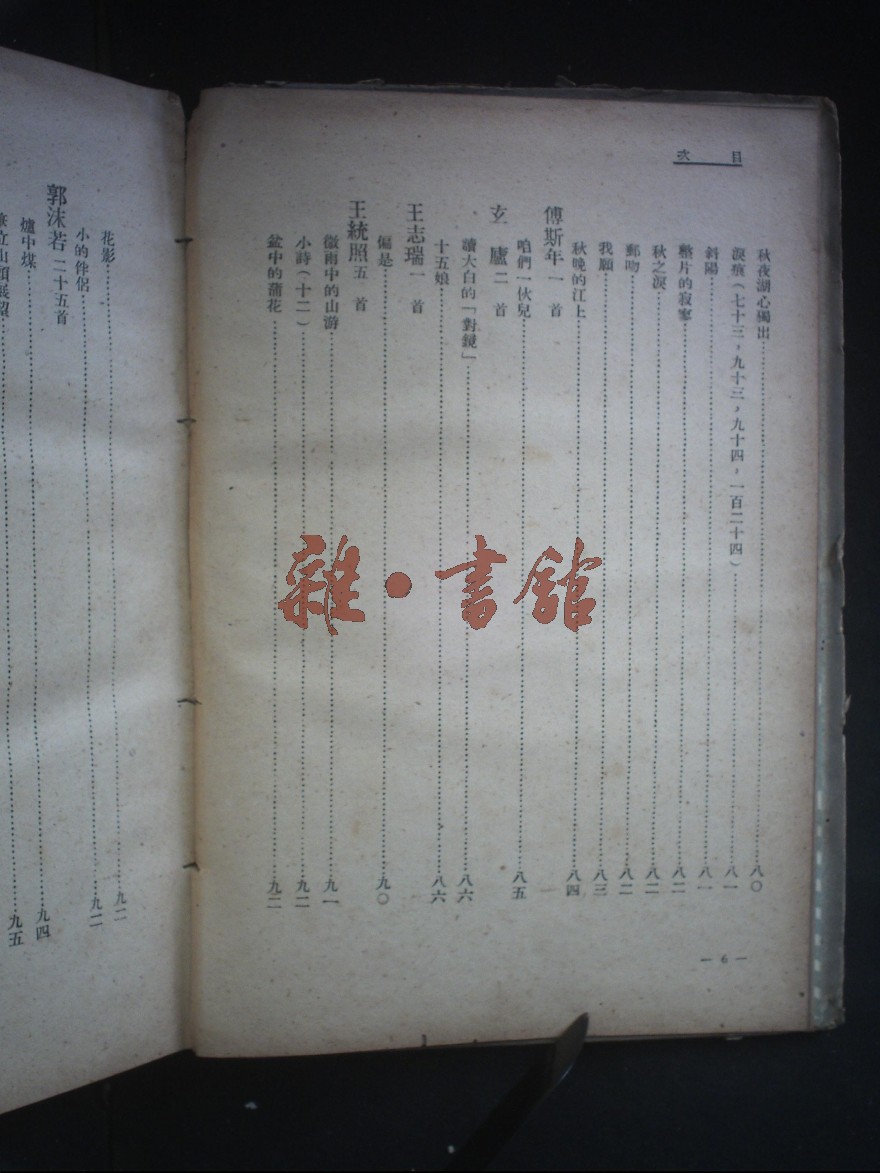 目次
秋夜湖心獨出……八〇
淚痕(七十三,九十三,九十四,一百二十四)……八一
斜陽……八一
整片的寂寥……八二
秋之淚……八二
郵吻……八二
我願……八三
秋晚的江上……八四
傅斯年 一首
咱們一伙兒……八五
玄廬 二首
讀大白的「對鏡」……八六
十五娘……八六
王志瑞 一首
偏是……九〇
王統照 五首
微雨中的山游……九一
小詩(十二)……九二
盆中的蒲花……九二
—6—
花影……九二
小的伴侶……九二
郭沫若 二十五首
爐中煤……九四
立山頭展望……九五
雜·書館